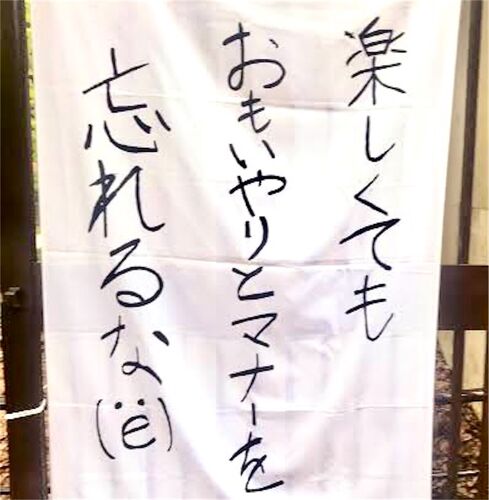 楽しくても
おもいやりとマナーを
忘れるな(ë)